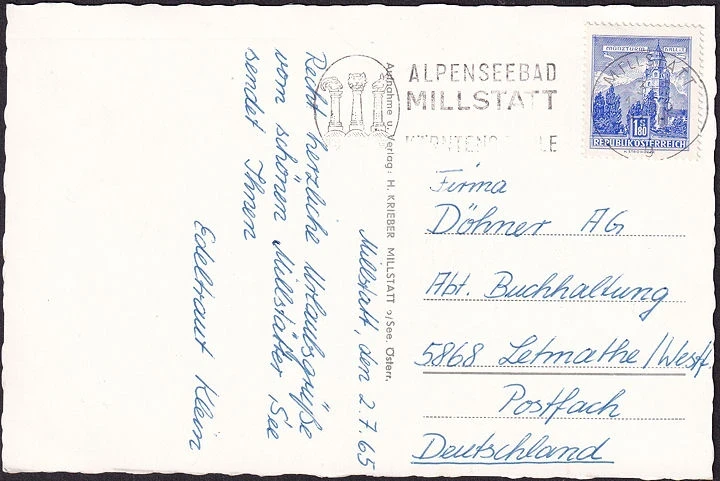 Millstatt, den 2.7.65
Recht herzliche Urlaubsgrüße
vom schönen Millstätter See
sendet Ihnen
Edeltraut Klein
Aufnahme u. Verlag: H. KRIEBER MILLSTATT a/See. Österr.
ALPENSEEBAD
MILLSTATT
MILLSTATT
MÜNZTURM
REPUBLIK ÖSTERREICH
1.80
Firma
Döhner AG
Abt. Buchhaltung
5868 Letmathe/Westf.
Postfach
Deutschland